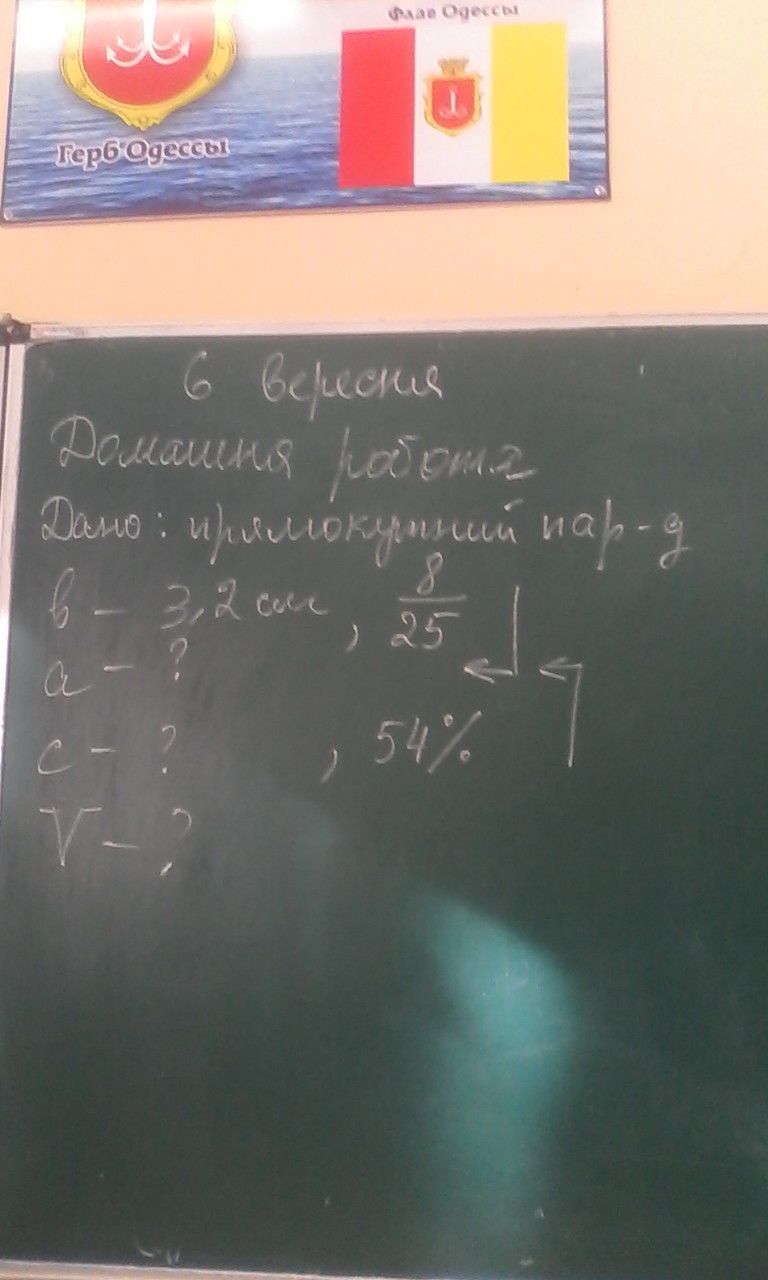 Флаг Одессы
Герб Одессы
6 вересня
Домашня робота
Дано: прямокутний пар-д
в – 3,2 см, 8/25
а – ?
с – ? , 54%
V – ?